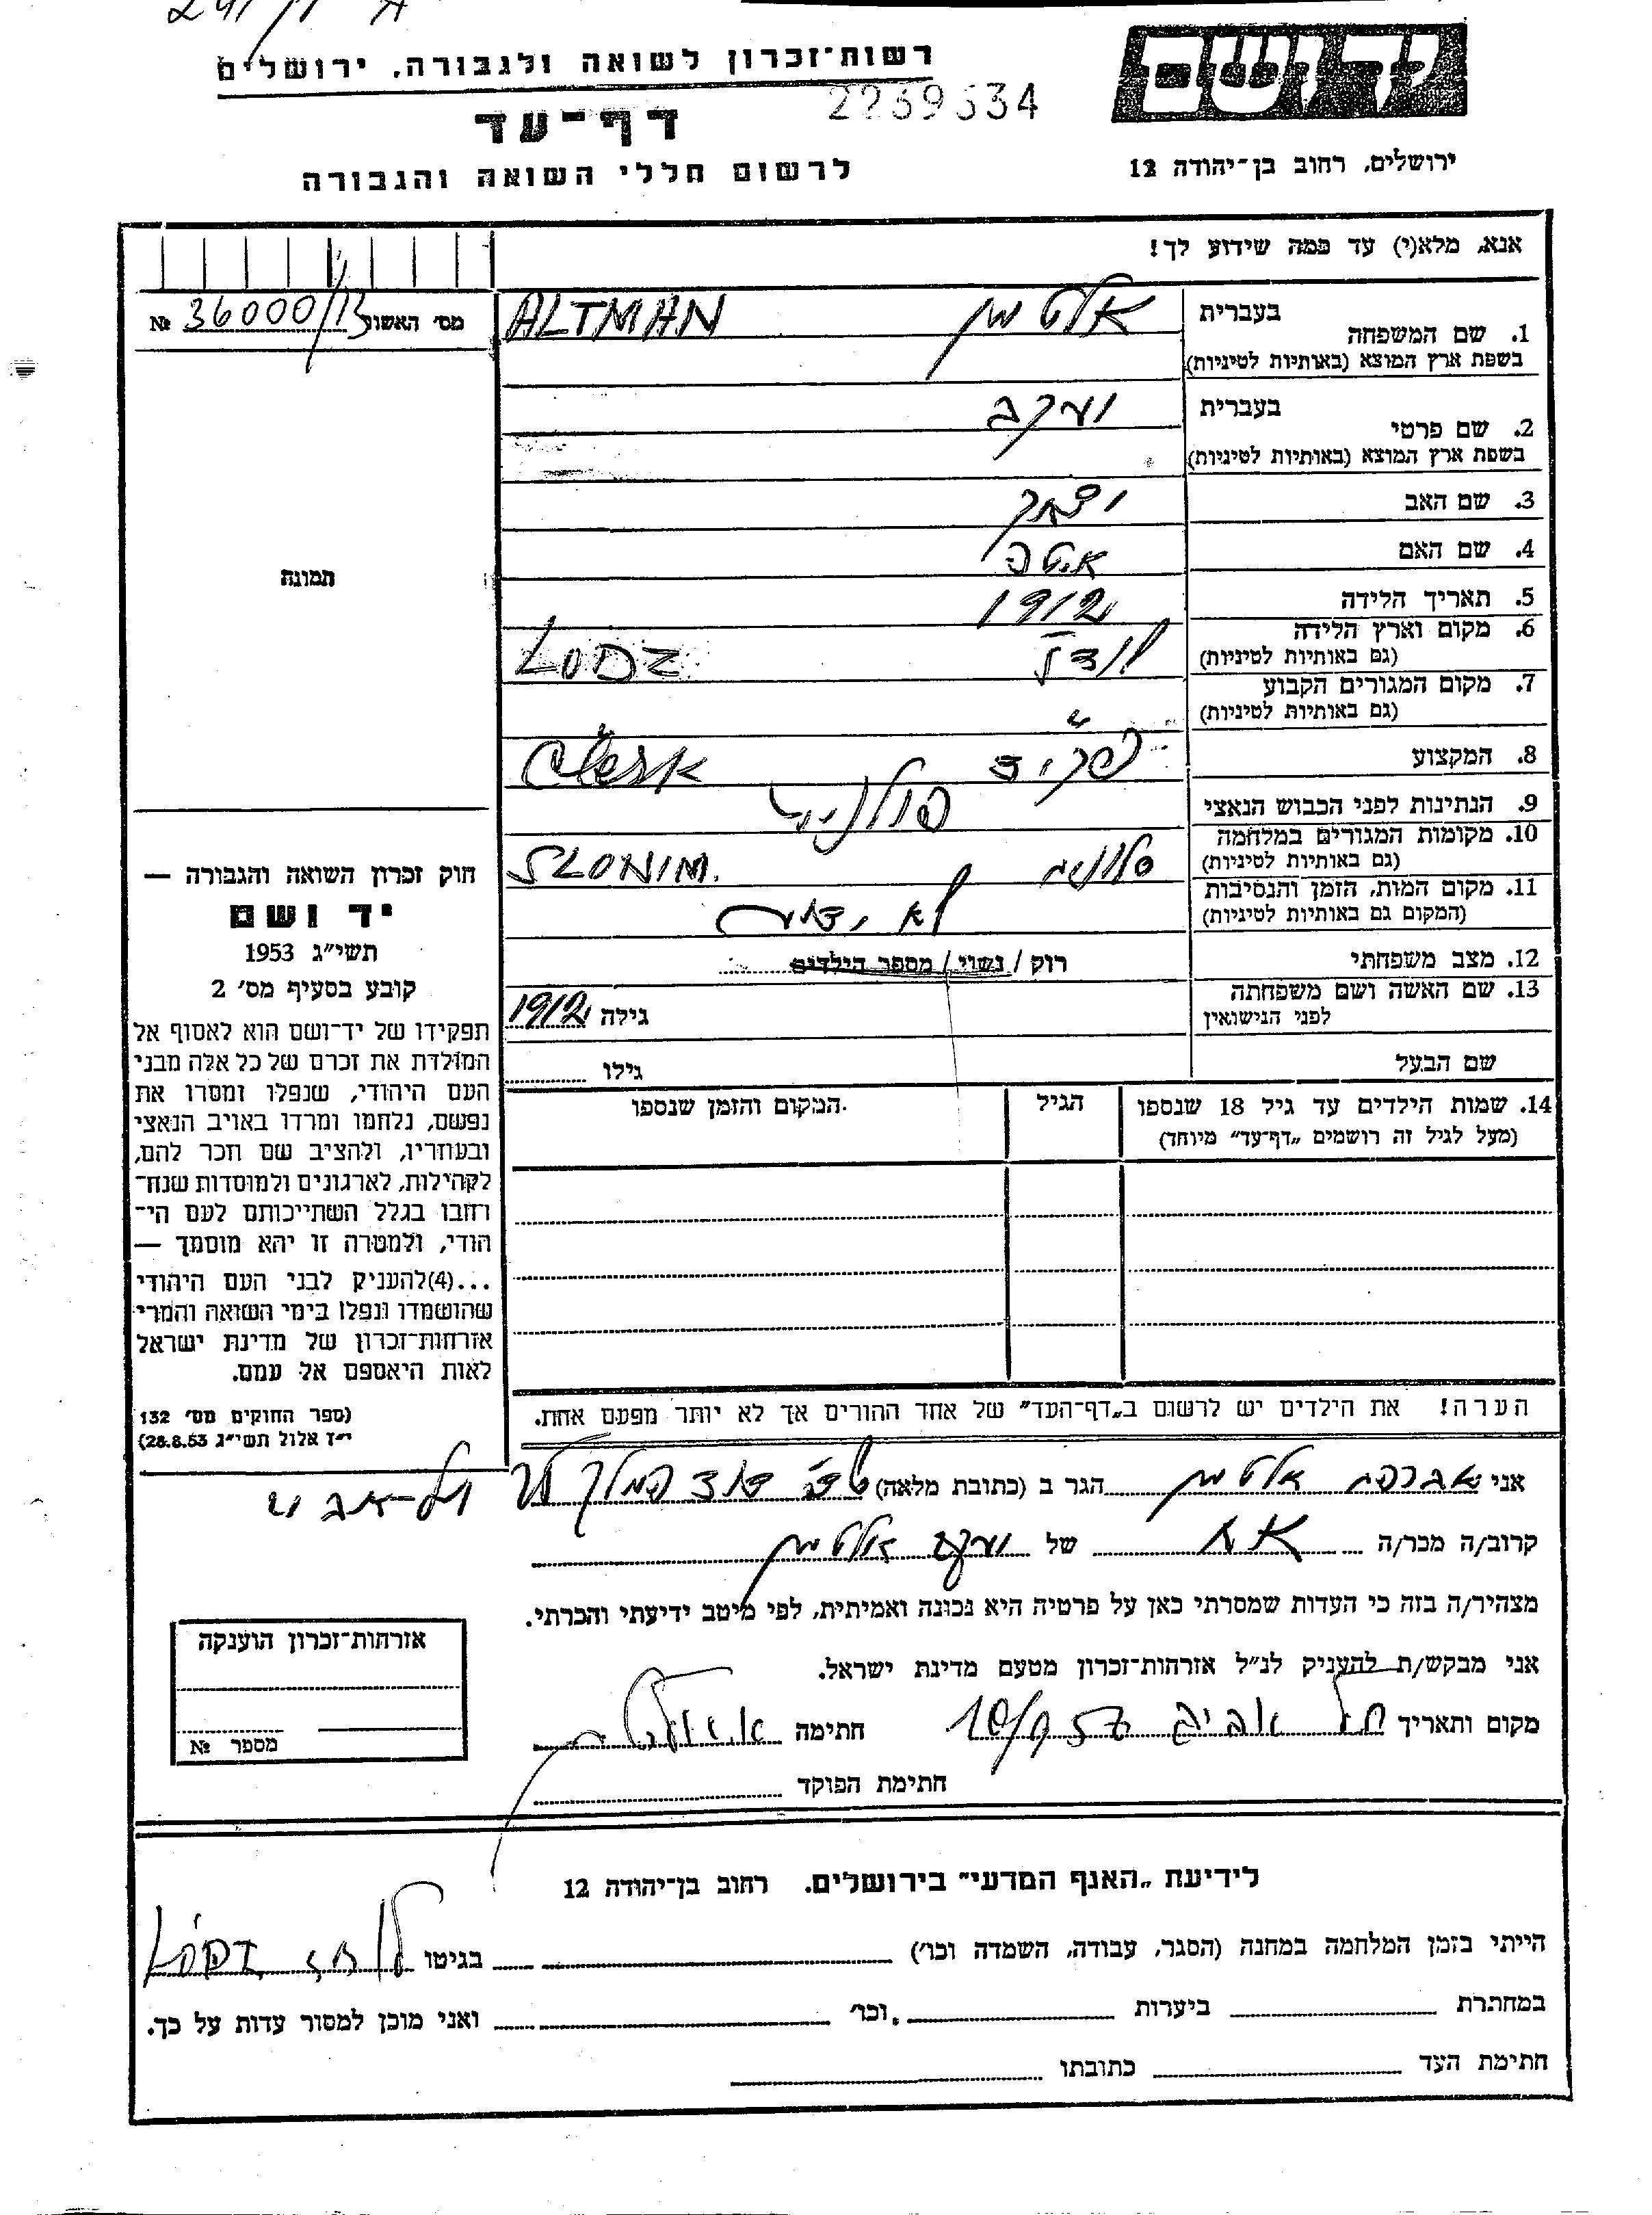 רשות־זכרון לשואה ולגבורה, ירושלים
יד ושם
דף־עד
2239534
לרשום חללי השואה והגבורה
ירושלים, רחוב בן־יהודה 12
אנא, מלא(י) עד כמה שידוע לך!
מס׳ האשור 36000/13 №
1. שם המשפחה
בעברית אלטמן
בשפת ארץ המוצא (באותיות לטיניות) ALTMAN
2. שם פרטי
בעברית יעקב
בשפת ארץ המוצא (באותיות לטיניות)
3. שם האב יצחק
4. שם האם
5. תאריך הלידה 1912
6. מקום וארץ הלידה לודז LODZ
(גם באותיות לטיניות)
7. מקום המגורים הקבוע "
(גם באותיות לטיניות)
8. המקצוע פקיד
9. הנתינות לפני הכבוש הנאצי
10. מקומות המגורים במלחמה סלונים SLONIM.
(גם באותיות לטיניות)
11. מקום המות, הזמן והנסיבות לא ידוע
(המקום גם באותיות לטיניות)
12. מצב משפחתי רוק / נשוי / מספר הילדים
13. שם האשה ושם משפחתה
לפני הנישואין
גילה 1912
שם הבעל
גילו
14. שמות הילדים עד גיל 18 שנספו
(מעל לגיל זה רושמים „דף־עד״ מיוחד)
הגיל
המקום והזמן שנספו
הערה! את הילדים יש לרשום ב„דף־העד״ של אחד ההורים אך לא יותר מפעם אחת.
תמונה
חוק זכרון השואה והגבורה —
יד ושם
תשי״ג 1953
קובע בסעיף מס׳ 2
תפקידו של יד־ושם הוא לאסוף אל
המולדת את זכרם של כל אלה מבני
העם היהודי, שנפלו ומסרו את
נפשם, נלחמו ומרדו באויב הנאצי
ובעוזריו, ולהציב שם וזכר להם,
לקהילות, לארגונים ולמוסדות שנח־
רחבו בגלל השתייכותם לעם הי־
הודי, ולמטרה זו יהא מוסמך —
...(4)להעניק לבני העם היהודי
שהושמדו ונפלו בימי השואה והמרי
אזרחות־זכרון של מדינת ישראל
לאות היאספם אל עמם.
(ספר החוקים מס׳ 132
י״ז אלול תשי״ג 28.8.53)
אני אברהם אלטמן הגר ב (כתובת מלאה) דוד המלך תל-אביב
קרוב/ה מכר/ה אח של יעקב אלטמן
מצהיר/ה בזה כי העדות שמסרתי כאן על פרטיה היא נכונה ואמיתית, לפי מיטב ידיעתי והכרתי.
אני מבקש/ת להעניק לנ״ל אזרחות־זכרון מטעם מדינת ישראל.
מקום ותאריך תל אביב חתימה
חתימת הפוקד
אזרחות־זכרון הוענקה
מספר №
לידיעת „האגף המדעי״ בירושלים, רחוב בן־יהודה 12
הייתי בזמן המלחמה במחנה (הסגר, עבודה, השמדה וכו׳) בגיטו LÓDZ
במחתרת ביערות וכו׳ ואני מוכן למסור עדות על כך.
חתימת העד כתובתו